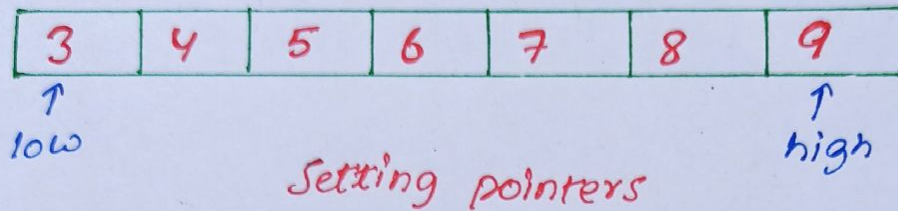 3 4 5 6 7 8 9
↑ ↑
low high
Setting pointers